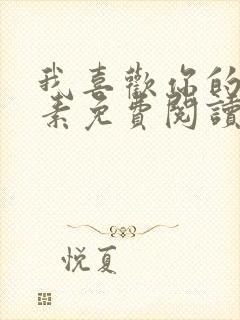 我喜歡你的
素免費閱讀
悅夏